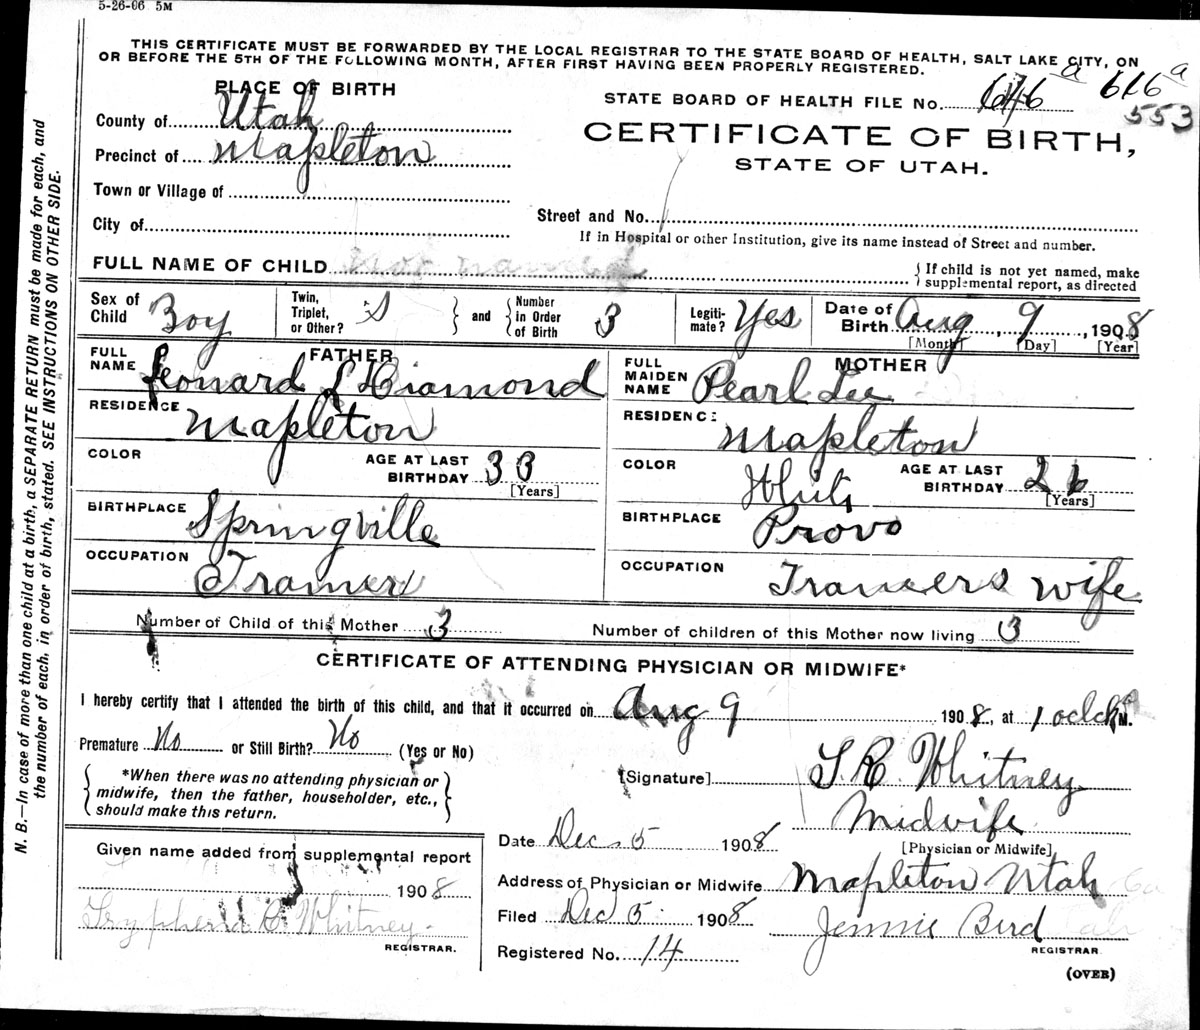 5-26-06 5M
THIS CERTIFICATE MUST BE FORWARDED BY THE LOCAL REGISTRAR TO THE STATE BOARD OF HEALTH, SALT LAKE CITY, ON
OR BEFORE THE 5TH OF THE FOLLOWING MONTH, AFTER FIRST HAVING BEEN PROPERLY REGISTERED.
PLACE OF BIRTH
STATE BOARD OF HEALTH FILE No. 646 a 616 a
553
County of Utah
CERTIFICATE OF BIRTH,
Precinct of Mapleton
STATE OF UTAH.
Town or Village of
Street and No.
City of
If in Hospital or other Institution, give its name instead of Street and number.
FULL NAME OF CHILD not named
If child is not yet named, make
supplemental report, as directed
Sex of Child Boy
Twin, Triplet, or Other? S and Number in Order of Birth 3
Legitimate? Yes
Date of Birth Aug, 9, 1908
[Month] [Day] [Year]
FATHER
FULL NAME Leonard L Diamond
RESIDENCE Mapleton
COLOR
AGE AT LAST BIRTHDAY 33
[Years]
BIRTHPLACE Springville
OCCUPATION Framer
MOTHER
FULL MAIDEN NAME Pearl Lee
RESIDENCE Mapleton
COLOR White
AGE AT LAST BIRTHDAY 26
[Years]
BIRTHPLACE Provo
OCCUPATION Framers wife
Number of Child of this Mother 3
Number of children of this Mother now living 3
CERTIFICATE OF ATTENDING PHYSICIAN OR MIDWIFE*
I hereby certify that I attended the birth of this child, and that it occurred on Aug 9 1908, at 1 oclck M.
Premature No or Still Birth? No (Yes or No)
*When there was no attending physician or
midwife, then the father, householder, etc.,
should make this return.
[Signature] T. R. Whitney
Midwife
[Physician or Midwife]
Date Dec. 5 1908
Given name added from supplemental report
1908
Tryphena R. Whitney
REGISTRAR.
Address of Physician or Midwife Mapleton Utah
Filed Dec 5 1908
Jennie Bird
REGISTRAR
Registered No. 14
(OVER)
N. B.—In case of more than one child at a birth, a SEPARATE RETURN must be made for each, and
the number of each, in order of birth, stated. SEE INSTRUCTIONS ON OTHER SIDE.